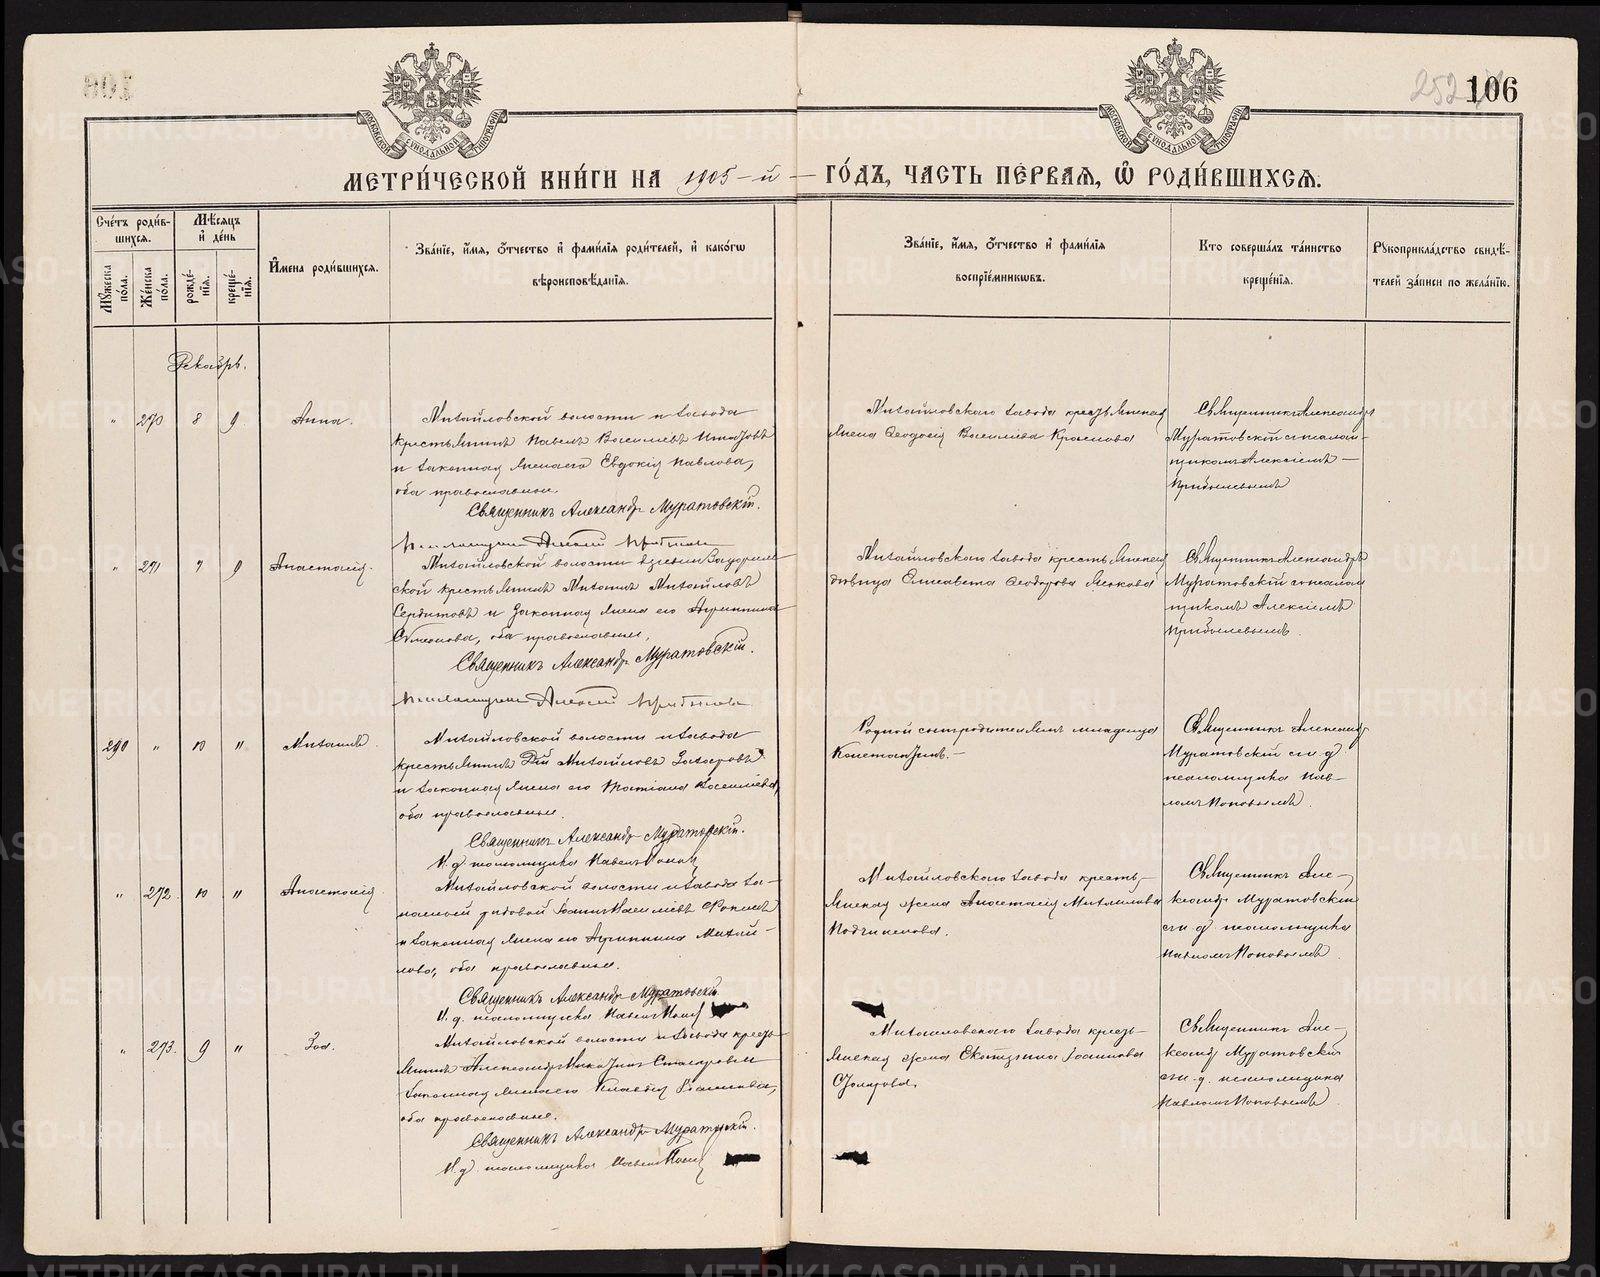 252
106
МОСКОВСКОЙ СѴНОДАЛЬНОЙ ТИПОГРАФІИ
МОСКОВСКОЙ СѴНОДАЛЬНОЙ ТИПОГРАФІИ
МЕТРИ́ЧЕСКОЙ КНИ́ГИ НА 1905-й ГО́ДЪ, ЧАСТЬ ПЕ́РВАЯ, Ѡ҆ РОДИ́ВШИХСЯ.
Сче́тъ роди́в-
шихся.
Мѣ́сяцъ
и҆ де́нь
Мꙋ́жеска по́ла.
Же́нска по́ла.
рожде́-
нїѧ.
креще́-
нїѧ.
И҆мена роди́вшихся.
Зва́нїе, и҆́мѧ, ѻ҆́тчество и҆ фами́лїѧ роди́телей, и҆ како́гѡ
вѣроисповѣ́данїѧ.
Зва́нїе, и҆́мѧ, ѻ҆́тчество и҆ фами́лїѧ
воспрїе́мникѡвъ.
Кто соверша́лъ та́инство
креще́нїѧ.
Рꙋкоприкла́дство свидѣ́-
телей за́писи по жела́нїю.
Декабрь.
" 270 8 9 Анна.
Михайловской волости и завода
крестьянинъ Павелъ Васильевъ
и законная жена его Евдокія Павлова,
оба православные.
Священникъ Александр Муратовскій.
Псаломщикъ Алексій
Михайловскаго завода крестьянская
жена Ѳеодосія Васильева Краснова
Священникъ Александръ
Муратовскій съ псалом-
щикомъ Алексіемъ
Прибылевымъ
" 271 7 9 Анастасія.
Михайловской волости деревни
ской крестьянинъ Михаилъ Михайловъ
Сердитовъ и законная жена его Агриппина
Симеонова, оба православные.
Священникъ Александр Муратовскій.
Псаломщикъ Алексій
Михайловскаго завода крестьянская
дѣвица Елисавета Ѳеодорова
Священникъ Александръ
Муратовскій съ псалом
щикомъ Алексіемъ
Прибылевымъ.
290 " 10 " Михаилъ.
Михайловской волости и завода
крестьянинъ Михайловъ Захаровъ
и законная жена его Татіана Васильева,
оба православные.
Священникъ Александр Муратовскій.
И. д. псаломщика Павелъ Поповъ
Родной сынъ родителямъ младенца
Константинъ.
Священникъ Александр
Муратовскій съ и. д.
псаломщика Пав-
ломъ Поповымъ.
" 272 10 " Анастасія
Михайловской волости и завода за-
пасной рядовой Іоаннъ
и законная жена его Агриппина Михай-
лова, оба православные.
Священникъ Александр Муратовскій.
И. д. псаломщика Павелъ Поповъ
Михайловскаго завода кресть-
янская жена Анастасія Михайлова
Священникъ Але-
ксандр Муратовскій
съ и. д. псаломщика
Павломъ Поповымъ.
" 273. 9 " Зоя.
Михайловской волости и завода кресть-
янинъ Александръ
законная жена его Клавдія
оба православные.
Священникъ Александр Муратовскій.
И. д. псаломщика Павелъ Поповъ
Михайловскаго завода кресть-
янская жена Екатерина Іоаннова
Священникъ Але-
ксандр Муратовскій
съ и. д. псаломщика
Павломъ Поповымъ.
METRIKI.GASO-URAL.RU